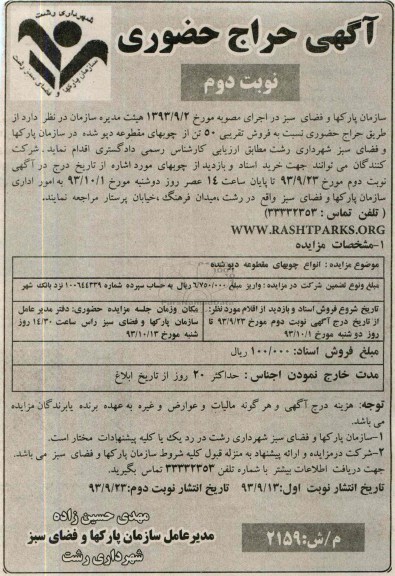 شهرداری رشت
سازمان پارکها و فضای سبز رشت
آگهی حراج حضوری
نوبت دوم
سازمان پارکها و فضای سبز در اجرای مصوبه مورخ ۱۳۹۳/۹/۲ هیئت مدیره سازمان در نظر دارد از
طریق حراج حضوری نسبت به فروش تقریبی ۵۰ تن از چوبهای مقطوعه دپو شده در سازمان پارکها
و فضای سبز شهرداری رشت مطابق ارزیابی کارشناس رسمی دادگستری اقدام نماید. شرکت
کنندگان می توانند جهت خرید اسناد و بازدید از چوبهای مورد اشاره از تاریخ درج در آگهی
نوبت دوم مورخ ۹۳/۹/۲۳ تا پایان ساعت ۱۴ عصر روز دوشنبه مورخ ۹۳/۱۰/۱ به امور اداری
سازمان پارکها و فضای سبز واقع در رشت،میدان فرهنگ ،خیابان پرستار مراجعه نمایند.
( تلفن تماس : ۳۳۳۳۲۳۵۳)
WWW.RASHTPARKS.ORG
۱-مشخصات مزایده
موضوع مزایده : انواع چوبهای مقطوعه دپو شده
مبلغ ونوع تضمین شرکت در مزایده : واریز مبلغ ۶/۷۵۰/۰۰۰ ریال به حساب سپرده شماره ۱۰۰۶۴۴۳۲۹ نزد بانک شهر
تاریخ شروع فروش اسناد و بازدید از اقلام مورد نظر: از تاریخ درج آگهی نوبت دوم مورخ ۹۳/۹/۲۳ تا روز دو شنبه مورخ ۹۳/۱۰/۱
مکان وزمان جلسه مزایده حضوری: دفتر مدیر عامل سازمان پارکها و فضای سبز راس ساعت ۱۴/۳۰ روز شنبه مورخ ۹۳/۱۰/۱۳
مبلغ فروش اسناد: ۱۰۰/۰۰۰ ریال
مدت خارج نمودن اجناس : حداکثر ۲۰ روز از تاریخ ابلاغ
توجه: هزینه درج آگهی و هر گونه مالیات و عوارض و غیره به عهده برنده یابرندگان مزایده
می باشد.
۱-سازمان پارکها و فضای سبز شهرداری رشت در رد یک یا کلیه پیشنهادات مختار است.
۲-شرکت درمزایده و ارائه پیشنهاد به منزله قبول کلیه شروط سازمان پارکها و فضای سبز می باشد.
جهت دریافت اطلاعات بیشتر با شماره تلفن ۳۳۳۳۲۳۵۳ تماس بگیرید.
تاریخ انتشار نوبت اول: ۹۳/۹/۱۳ تاریخ انتشار نوبت دوم: ۹۳/۹/۲۳
مهدی حسین زاده
مدیرعامل سازمان پارکها و فضای سبز
شهرداری رشت
م/ش:۲۱۵۹